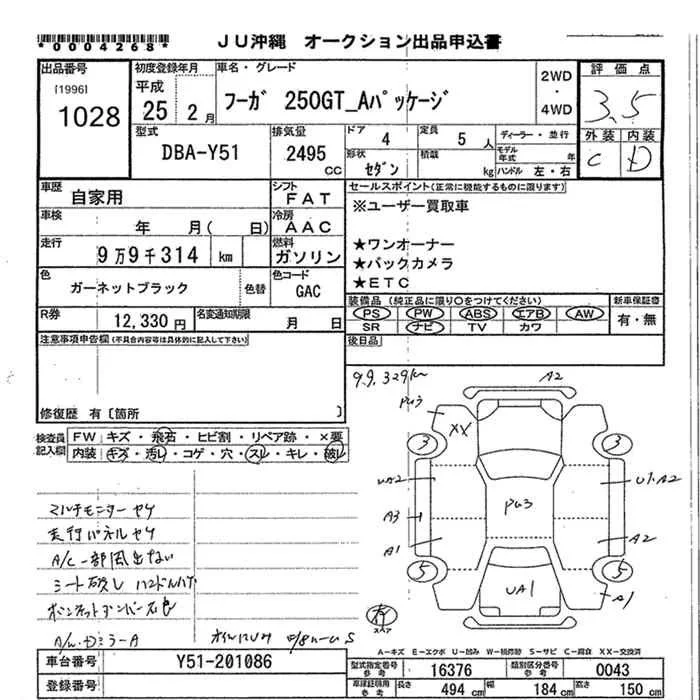 *0004268*
JU沖縄 オークション出品申込書
出品番号 初度登録年月 車名・グレード 2WD・4WD 評価点
[1996] 1028 平成 25 2月 フーガ 250GT_Aパッケージ 3.5
型式 排気量 ドア 4 定員 5人 ディーラー・並行 外装 内装
DBA-Y51 2495 CC 形状 セダン 積載 kg モデル年式 年 ハンドル 左・右 C D
車歴 自家用 シフト FAT セールスポイント(正常に機能するものに限ります)
車検 年 月( 日) 冷房 AAC ※ユーザー買取車
走行 9万9千314 km 燃料 ガソリン ★ワンオーナー
★バックカメラ
色 ガーネットブラック 色替 色コード GAC ★ETC
R券 12,330円 名変通知期限 月 日 装備品(純正品に限り○をつけてください) 新車保証書
PS PW ABS エアB AW 有・無
SR ナビ TV カワ
注意事項申告欄(不具合内容等は具体的に記入して下さい) 後日品
99,329km
A2
修復歴 有〔箇所 〕
検査員記入欄 FW キズ・飛石・ヒビ割・リペア跡・×要
内装 キズ・汚レ・コゲ・穴・スレ・キレ・破レ
PU3 XX
3 3
UA2 U1.A2
マルチモニターセケ
走行パネルセケ
A3 PU3
A/C一部風出ない
A1 A2
シート破レ
5 5
UA1 A1
有 スペア
A-キズ E-エクボ U-凹み W-補修跡 S-サビ C-腐食 XX-交換済
車台番号 Y51-201086 型式指定番号 参考 16376 類別区分番号 参考 0043
登録番号 車庫証明用 参考 長さ 494 cm 幅 184 cm 高さ 150 cm